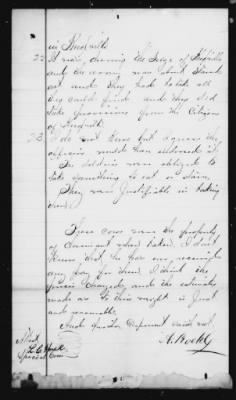 in Knoxville
22 It was, during the siege of Knoxville
and the army was about starved
out and they had to take all
they could find and they did
take provisions from the Citizens
of Knoxville
23 I do not know but I guess the
officers must have ordered it.
The soldiers were obliged to
take something to eat or starve,
They were Justifiable in taking
cows.
These cows were the property
of claimant when taken. I don't
know that he has ever received
any pay for them. I think the
prices charged and the estimate
made as to this weight is Just
and reasonable.
And further Deponent saith not.
Attest
Special Com